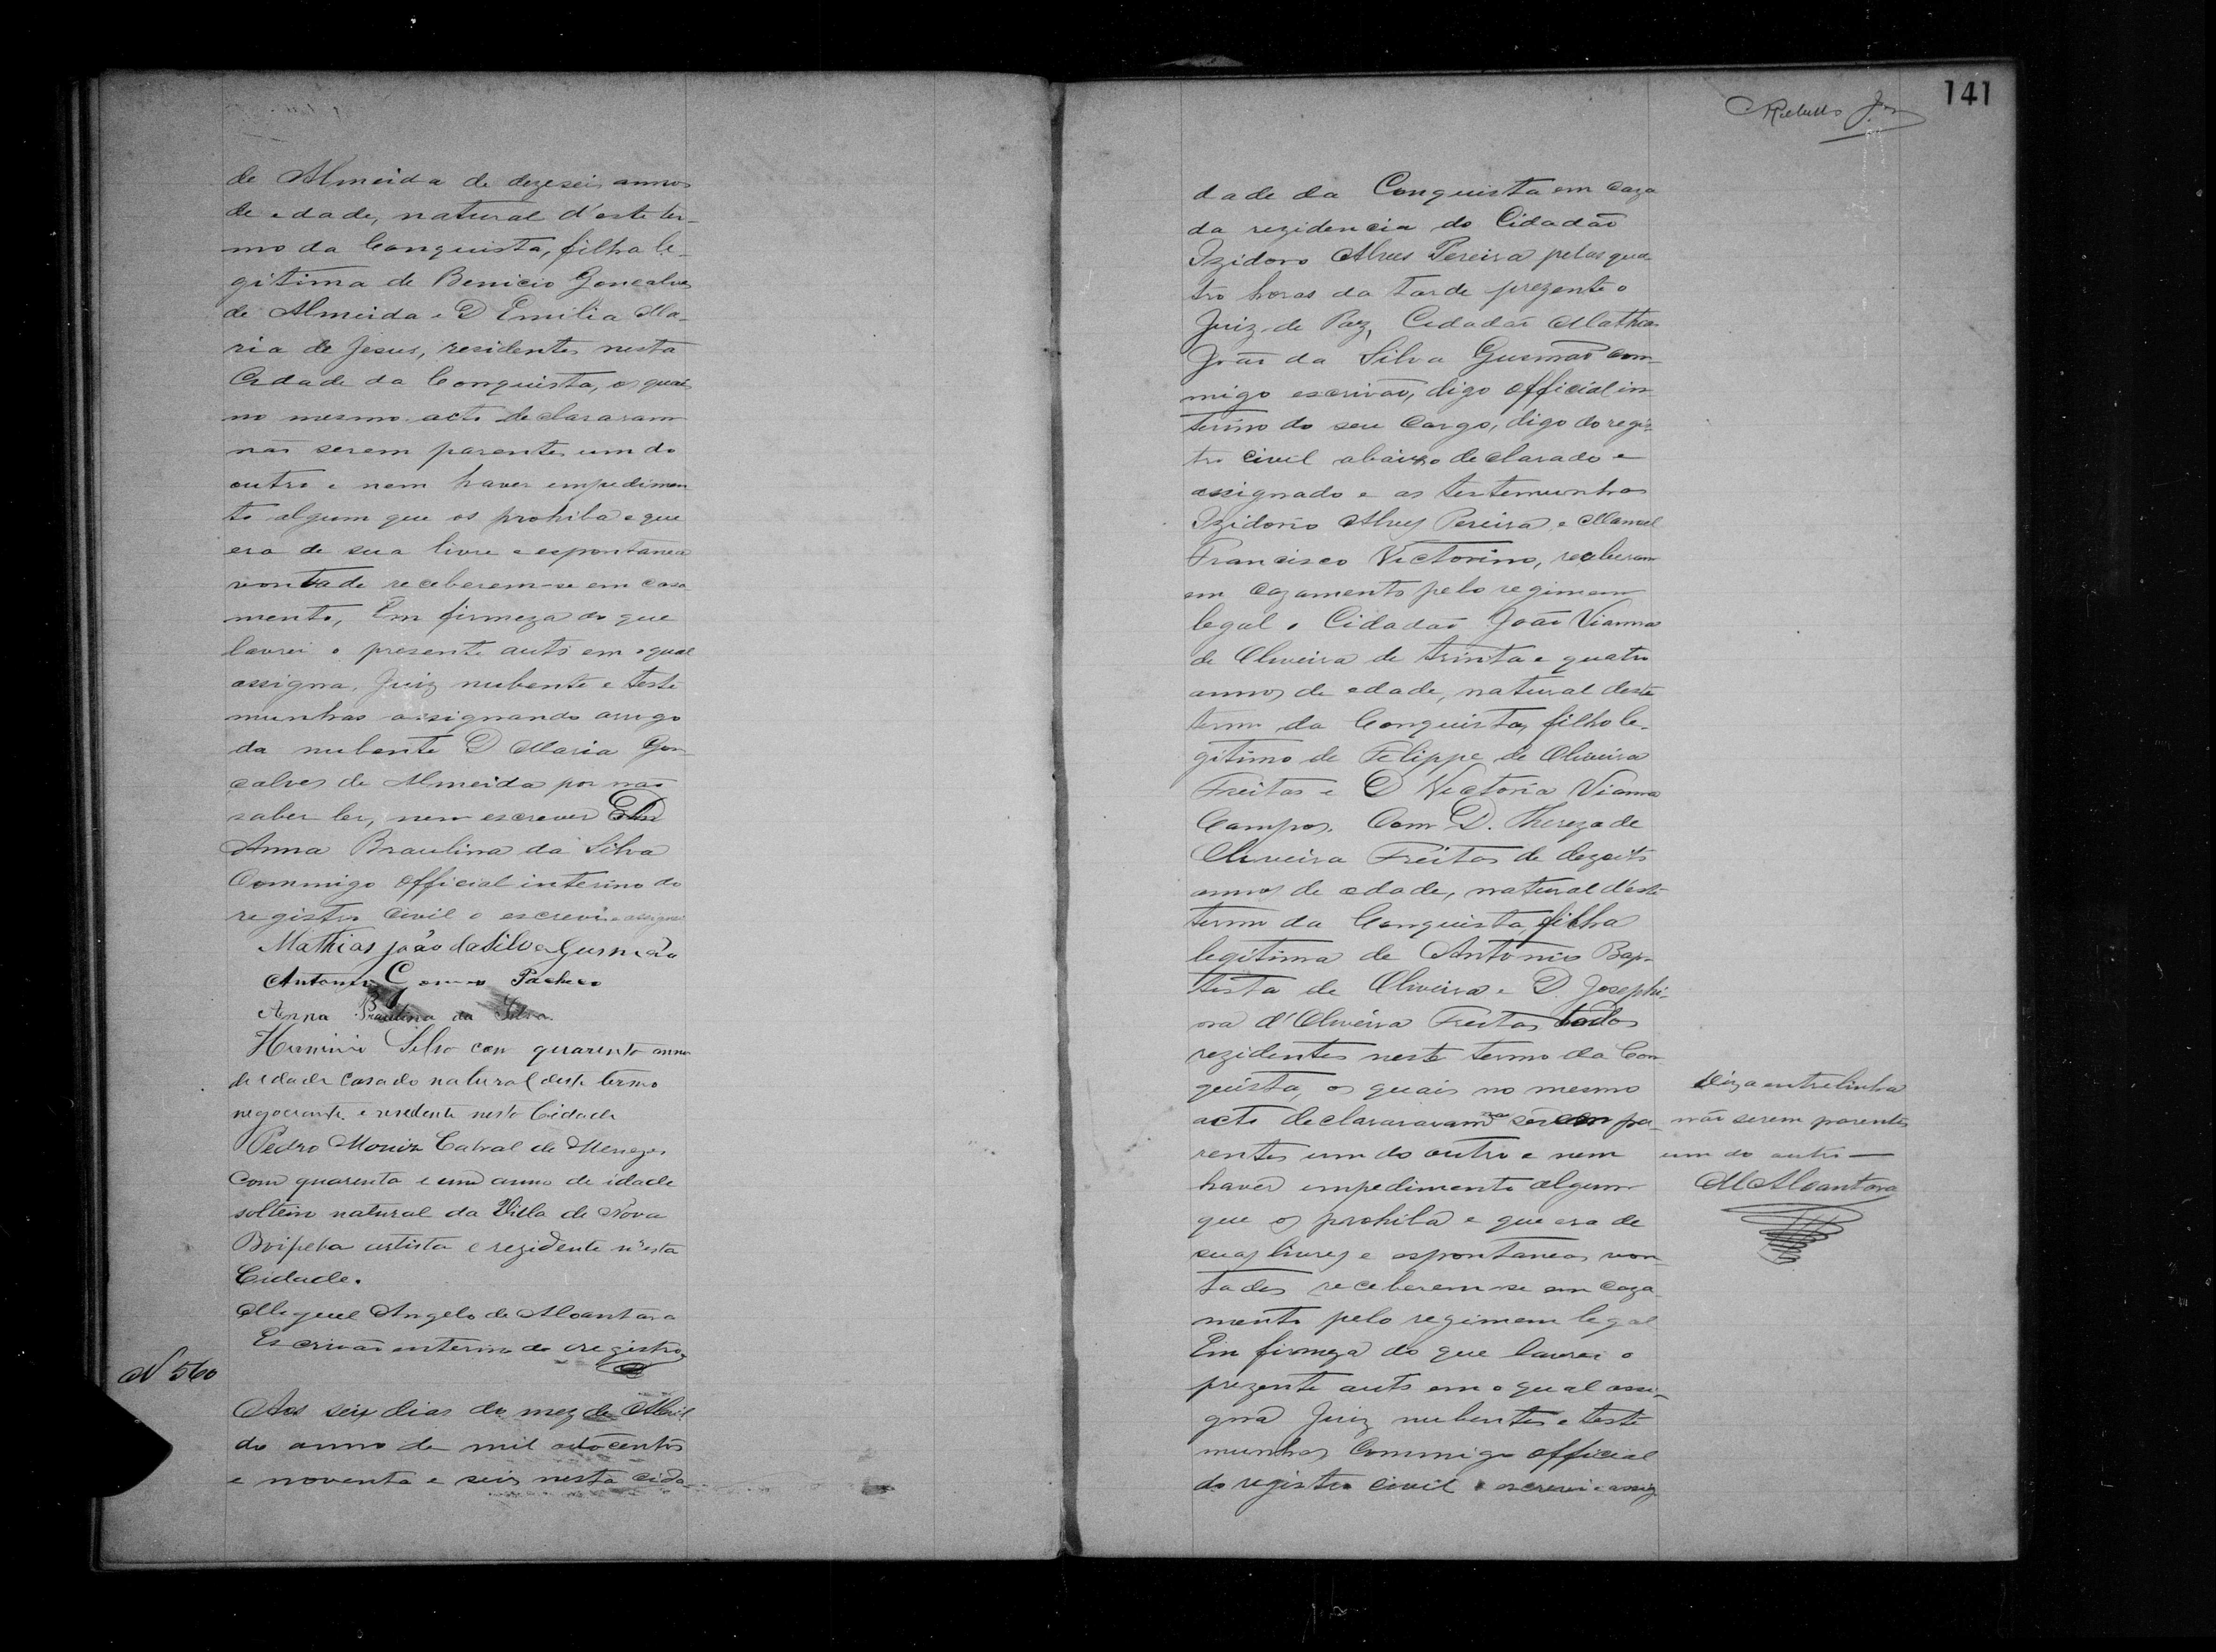 de Almeida de dezeseis annos
de edade, natural d'este ter-
mo da Conquista, filha le-
gitima de Benicio Gonçalves
de Almeida e D Emilia Ma-
ria de Jesus, residentes nesta
Cidade da Conquista, os quais
no mesmo acto declararam
não serem parentes um do
outro e nem haver empedimen
to algum que os prohiba e que
era de sua livre e espontanea
vontade receberem-se em casa
mento, Em firmeza do que
lavrei o presente auto em o qual
assigna, Juiz nubente e teste
munhas assignando arrogo
da nubente D Maria Gon-
çalves de Almeida por não
saber ler, nem escrever D
Anna Braulina da Silva
Commigo official interino do
registro Civil o escrevi e assignei
Mathias João da Silva Gusmão
Antonio Gomes Pacheco
Anna Braulina da Silva
Herminio Silva com quarenta annos
de idade casado natural deste termo
negociante e residente nesta Cidade
Pedro Moniz Cabral de Menezes
com quarenta e um annos de idade
solteiro natural da Villa de Nova
Boipeba artista e rezidente n'esta
Cidade.
Miguel Angelo de Alcantara
Escrivão interino do registro
N 560
Aos seis dias do mez de Abril
do anno de mil oitocentos
e noventa e seis nesta cida
141
dade da Conquista em caza
da rezidencia do Cidadão
Izidoro Alves Pereira pelas qua
tro horas da tarde prezente o
Juiz de Paz, Cidadão Mathias
João da Silva Gusmão com
migo escrivão, digo official in
terino do seu Cargo, digo do regis-
tro civil abaixo declarado e
assignado e as testemunhas
Izidoro Alves Pereira e Manoel
Francisco Victorino, receberam
em cazamento pelo regimem
legal o Cidadão João Vianna
de Oliveira de trinta e quatro
annos de edade, natural deste
termo da Conquista, filho le-
gitimo de Felippe de Oliveira
Freitas e D Victoria Vianna
Campos. Com D. Thereza de
Oliveira Freitas de dezoito
annos de edade, natural d'este
termo da Conquista, filha
legitima de Antonio Bap-
tista de Oliveira e D. Josephi-
na d'Oliveira Freitas todos
rezidentes neste termo da Con
quista, os quais no mesmo
acto declararavam não serem pa-
rentes um do outro e nem
haver empedimento algum
que os prohiba e que era de
suas livres e espontaneas von-
tades receberem-se em caza
mento pelo regimem legal
Em firmeza do que lavrei o
prezente auto em o qual assi-
gna Juiz nubentes e teste
munhas Commigo official
do registro civil o escrevi e assig
Diz a entrelinha
não serem parentes
um do outro —
M Alcantara